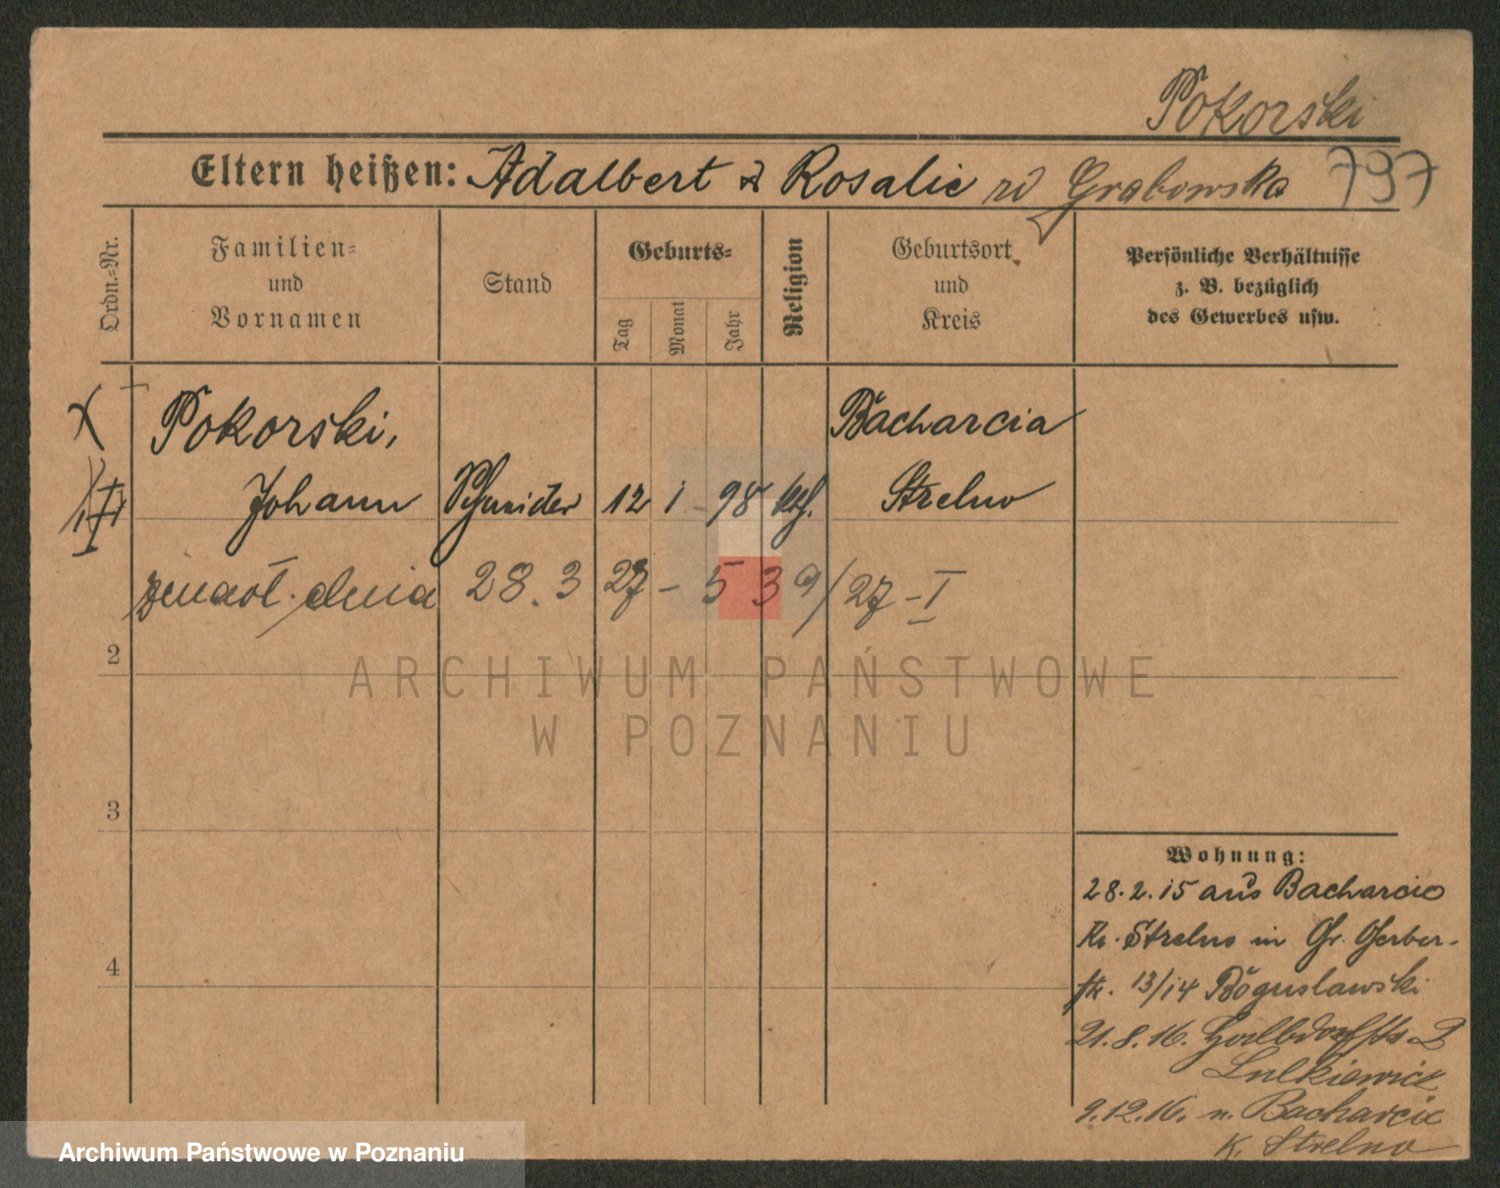 Pokorski
Eltern heißen: Adalbert & Rosalie Grabowska 797
Ordn.-Nr.
Familien-
und
Vornamen
Stand
Geburts-
Tag
Monat
Jahr
Religion
Geburtsort
und
Kreis
Persönliche Verhältnisse
z. B. bezüglich
des Gewerbes usw.
Pokorski,
Johann
Schneider
12 1 98 kth.
Bacharcia
Strelno
zmarł dnia 28.3 27 - 539/27 - I
2
3
4
ARCHIWUM PAŃSTWOWE
W POZNANIU
Wohnung:
28.2.15 aus Bacharcie
Kr. Strelno in Gr. Gerber-
str. 13/14 Boguslawski
21.8.16. 2
Lulkiewicz
9.12.16. n. Bacharcie
K. Strelno
Archiwum Państwowe w Poznaniu